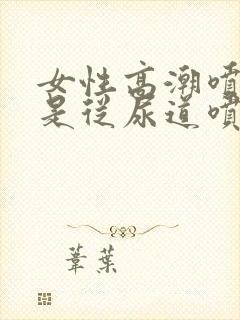 女性高潮噴
是從尿道噴
葦葉